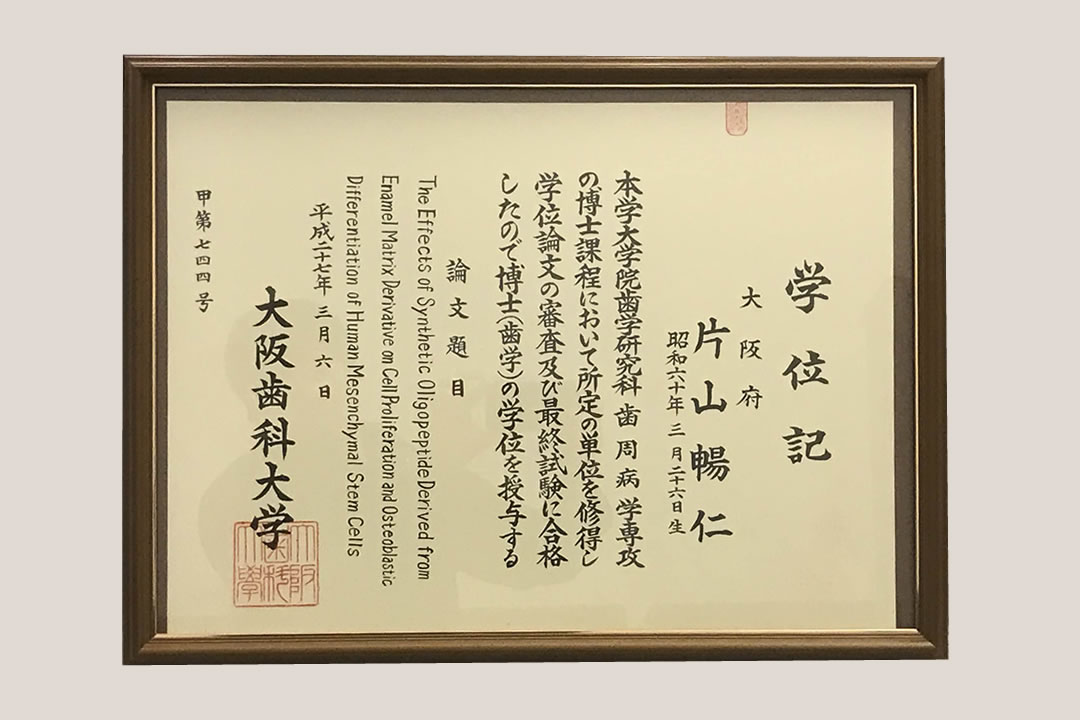 学位記
大阪府
片山暢仁
昭和六十年三月二十六日生
本学大学院歯学研究科歯周病学専攻
の博士課程において所定の単位を修得し
学位論文の審査及び最終試験に合格
したので博士(歯学)の学位を授与する
論文題目
The Effects of Synthetic Oligopeptide Derived from
Enamel Matrix Derivative on Cell Proliferation and Osteoblastic
Differentiation of Human Mesenchymal Stem Cells
平成二十七年三月六日
大阪歯科大学
甲第七四四号